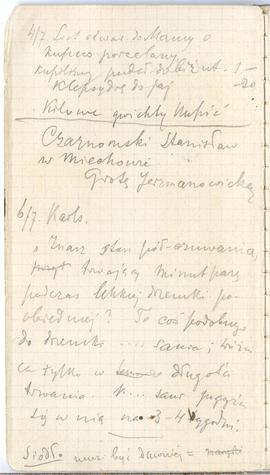 4/7. List otwar. do Mamy o
kupno porcelany
kupiliśmy pudeł. do biżut. 1—
Klepsydrę do jaj —20
Kilowe gwichty kupić
Czarnomski Stanisław
w Miechowie
Grotę Jermanowicką
6/7. Karls.
„Znasz stan pół-czuwania,
trwający minut parę
podczas lekkiej drzemki po-
obiedniej? To coś podobnego
do drzemki .... sanna; różni-
ca tylko w długości
trwania.
się w nią na 3-4 tygodni
Siodło musi być dawniej =